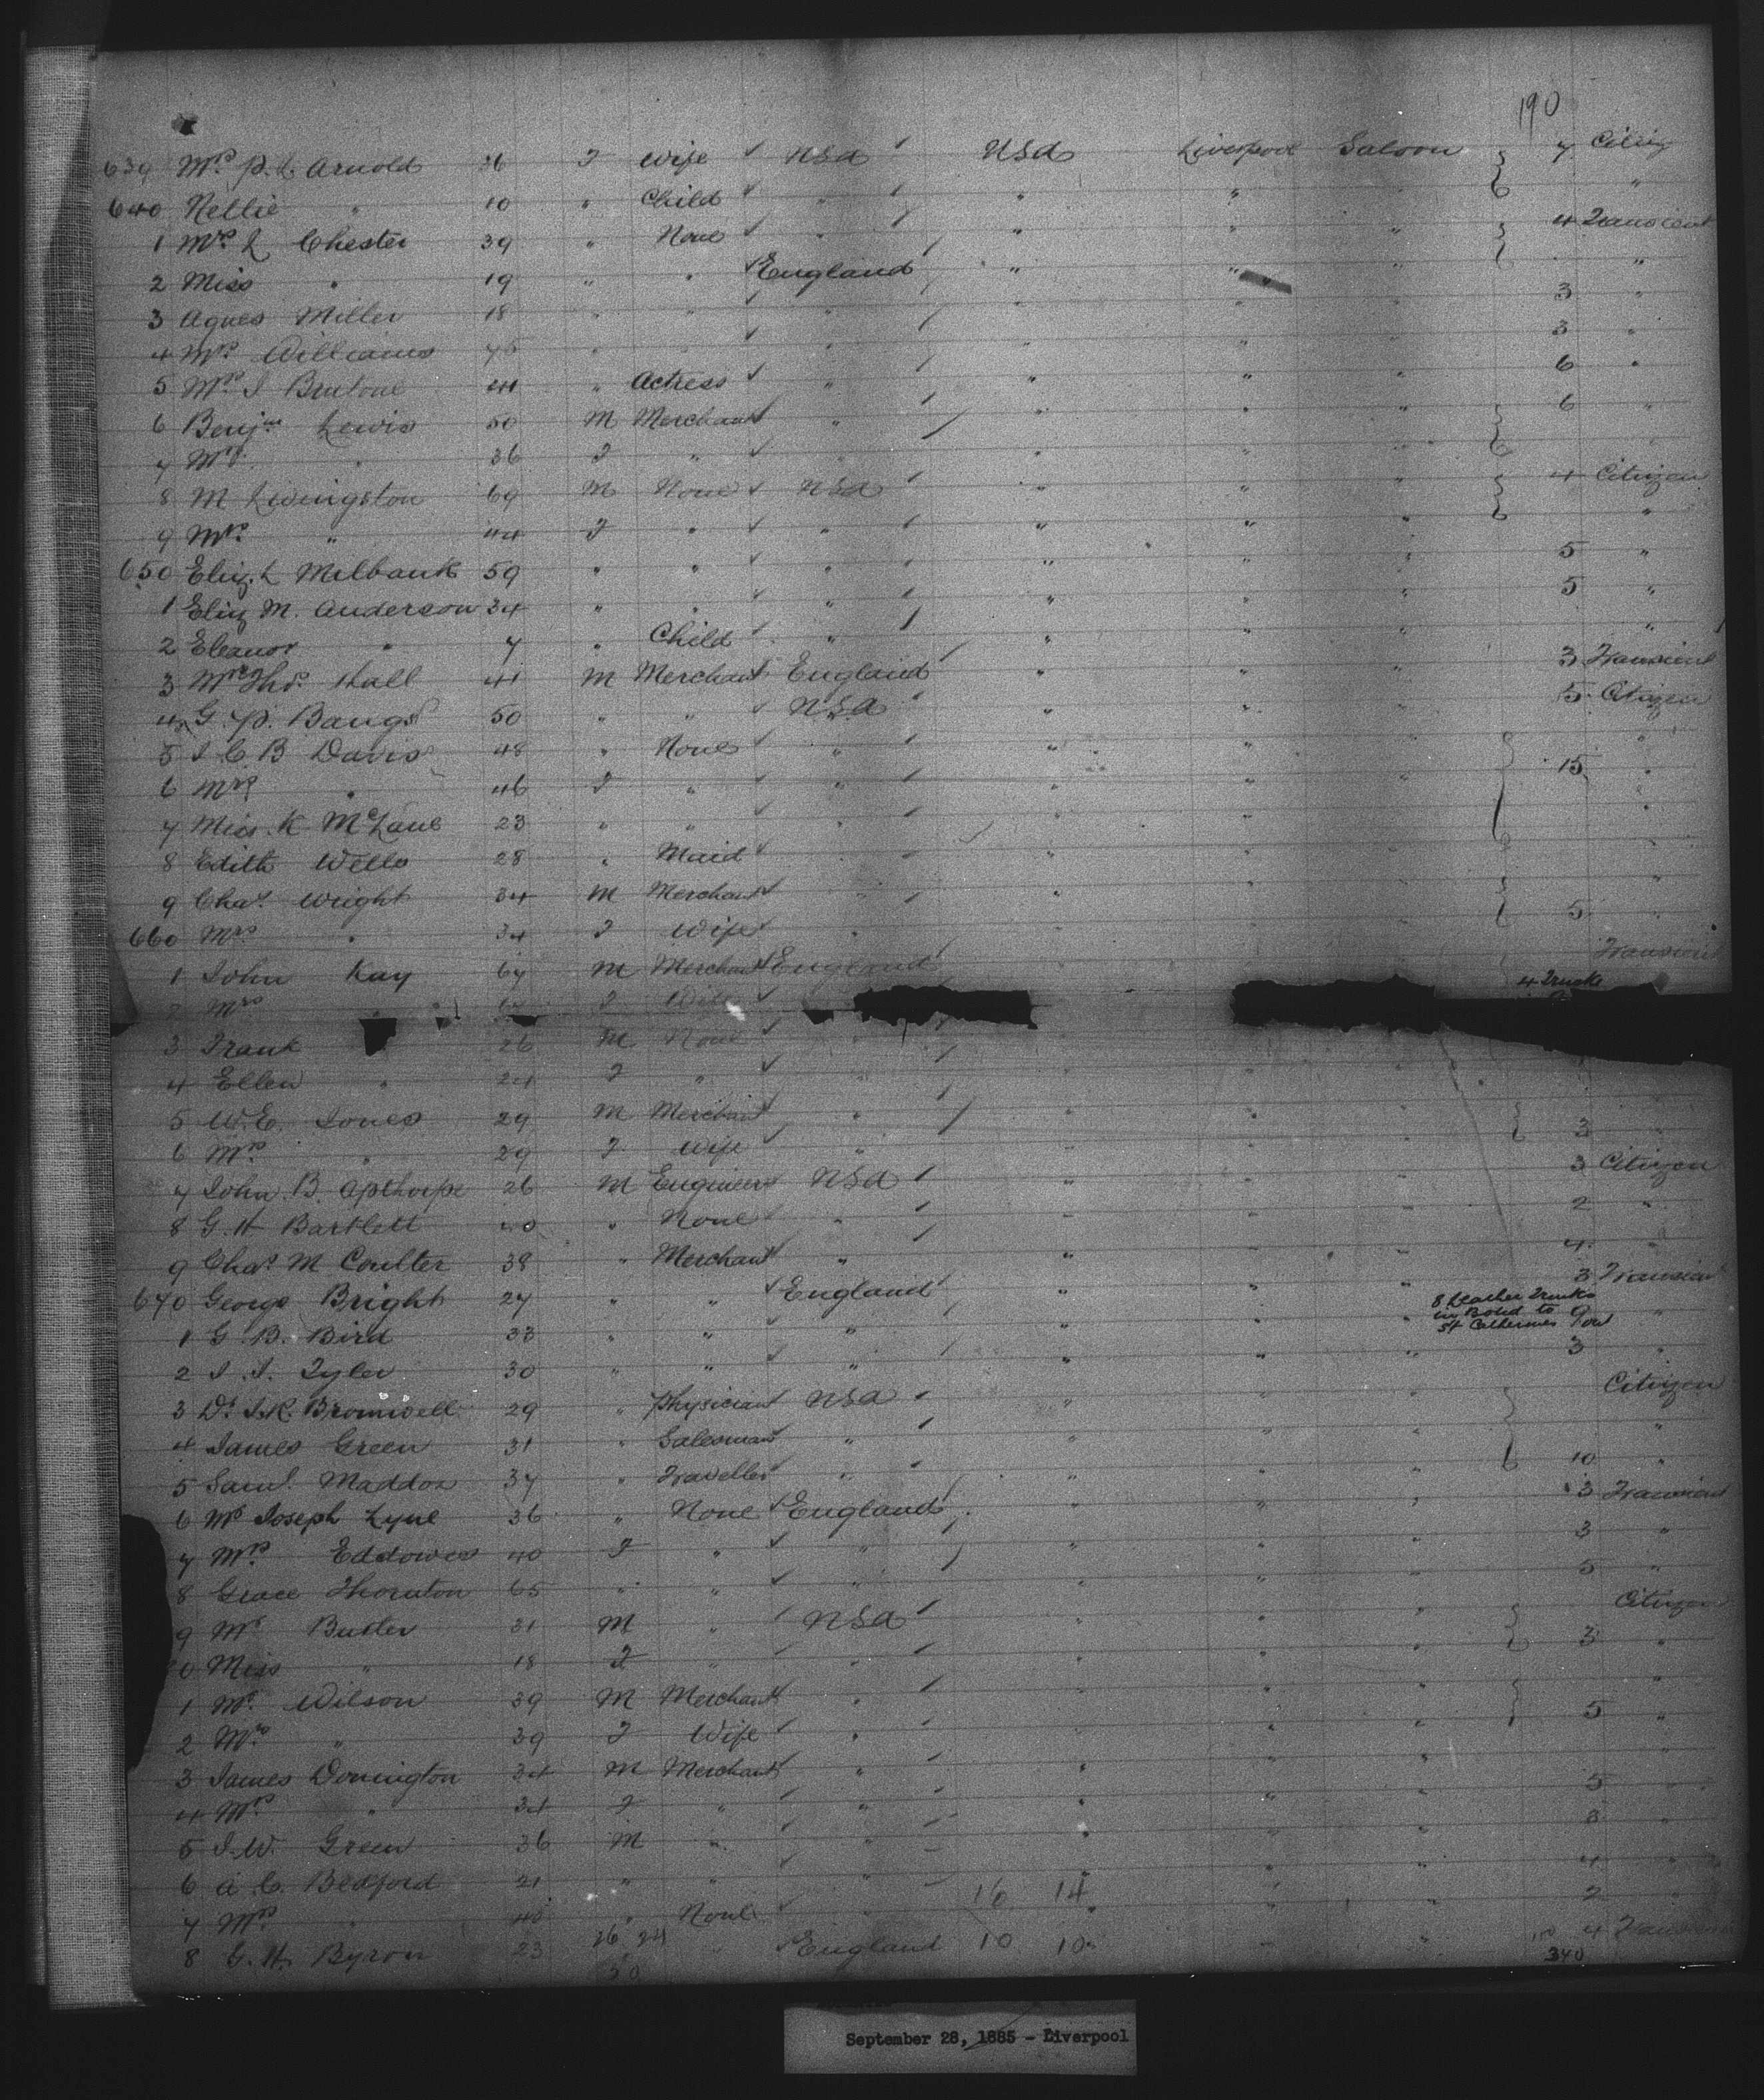 190
639 Mrs P. L. Arnold 36 F Wife ✓ USA USA Liverpool Saloon 7 Citiz
640 Nellie " 10 " Child ✓ " " " "
1 Mrs L Chester 39 " None ✓ " " " " 4 Transient
2 Miss " 19 " " ✓ England " " " "
3 Agnes Miller 18 " " ✓ " " " " 3 "
4 Mrs Williams 45 " " ✓ " " " " 3 "
5 Mrs J 41 " Actress ✓ " " " " 6 "
6 Benjn Lewis 50 M Merchant ✓ " " " " 6 "
7 Mrs " 36 F " ✓ " " " " "
8 M Livingston 69 M None ✓ USA " " " 4 Citizen
9 Mrs " 44 F " ✓ " " " " "
650 Eliz. L Milbank 59 " " ✓ " " " " 5 "
1 Eliz M. Anderson 34 " " ✓ " " " " 5 "
2 Eleanor " 7 " Child ✓ " " " " "
3 Mr Thos. Hall 41 M Merchant ✓ England " " " 3 Transient
4 G. P. Bangs 50 " " ✓ USA " " " 5 Citizen
5 J. C. B Davis 48 " None ✓ " " " " "
6 Mrs " 46 F " ✓ " " " " 15 "
7 Miss K McLane 23 " " ✓ " " " " "
8 Edith Wells 28 " Maid ✓ " " " " "
9 Chas. Wright 34 M Merchant ✓ " " " " "
660 Mrs " 34 F Wife ✓ " " " " 5 "
1 John Kay 67 M Merchant ✓ England " " " Transient
2 Mrs " F Wife ✓ 4 Trunks
3 Frank " 26 M None ✓ "
4 Ellen " 24 F " ✓ " " " "
5 W. E. Jones 29 M Merchant ✓ " " " " "
6 Mrs " 29 F Wife ✓ " " " " 3 "
7 John B. Apthorpe 26 M Engineer ✓ USA " " " 3 Citizen
8 G. H Bartlett 40 " None ✓ " " " " 2 "
9 Chas. M Coulter 38 " Merchant ✓ " " " " 4 "
670 George Bright 27 " " ✓ England " " " 3 Transient
8 Leather Trunks
in Bond to
St Catherines
1 G. B. Bird 33 " " ✓ " " " " 9 "
2 J. J. Tyler 30 " " ✓ " " " " 3 "
3 Dr J. R. Bromwell 29 " Physician ✓ USA " " " Citizen
4 James Green 31 " Salesman ✓ " " " " "
5 Saml. Maddox 37 " Traveller ✓ " " " " 10 "
6 Mr Joseph Lyne 36 " None ✓ England " " " 3 Transient
7 Mrs Eddowes 40 F " ✓ " " " " 3 "
8 Grace Thornton 65 " " ✓ " " " " 5 "
9 Mr Butler 31 M " ✓ USA " " " Citizen
0 Miss " 18 F " ✓ " " " " 3 "
1 Mr. Wilson 39 M Merchant ✓ " " " " "
2 Mrs " 39 F Wife ✓ " " " " 5 "
3 James Donington 34 M Merchant ✓ " " " " "
4 Mrs " 34 F " ✓ " " " " 5 "
5 J. W. Green 36 M " ✓ " " " " 3 "
6 A. C. Bedford 21 " " ✓ " 16 14 " " 4 "
7 Mrs " 40 " None ✓ " " " " 2 "
8 G. H. Byron 23 26 24 " ✓ England 10 10 " " 4 Transient
50 340
September 28, 1885 - Liverpool